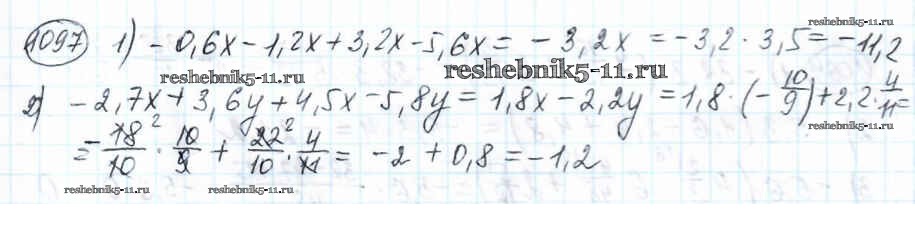 reshebnik5-11.ru
1097 1) - 0,6x - 1,2x + 3,2x - 5,6x = - 3,2x = - 3,2 · 3,5 = - 11,2
reshebnik5-11.ru reshebnik5-11.ru
2) - 2,7x + 3,6y + 4,5x - 5,8y = 1,8x - 2,2y = 1,8 · (- 10/9) + 2,2 · 4/11 =
reshebnik5-11.ru
= - 18²/10 · 10/9 + 22²/10 · 4/11 = - 2 + 0,8 = - 1,2
reshebnik5-11.ru reshebnik5-11.ru